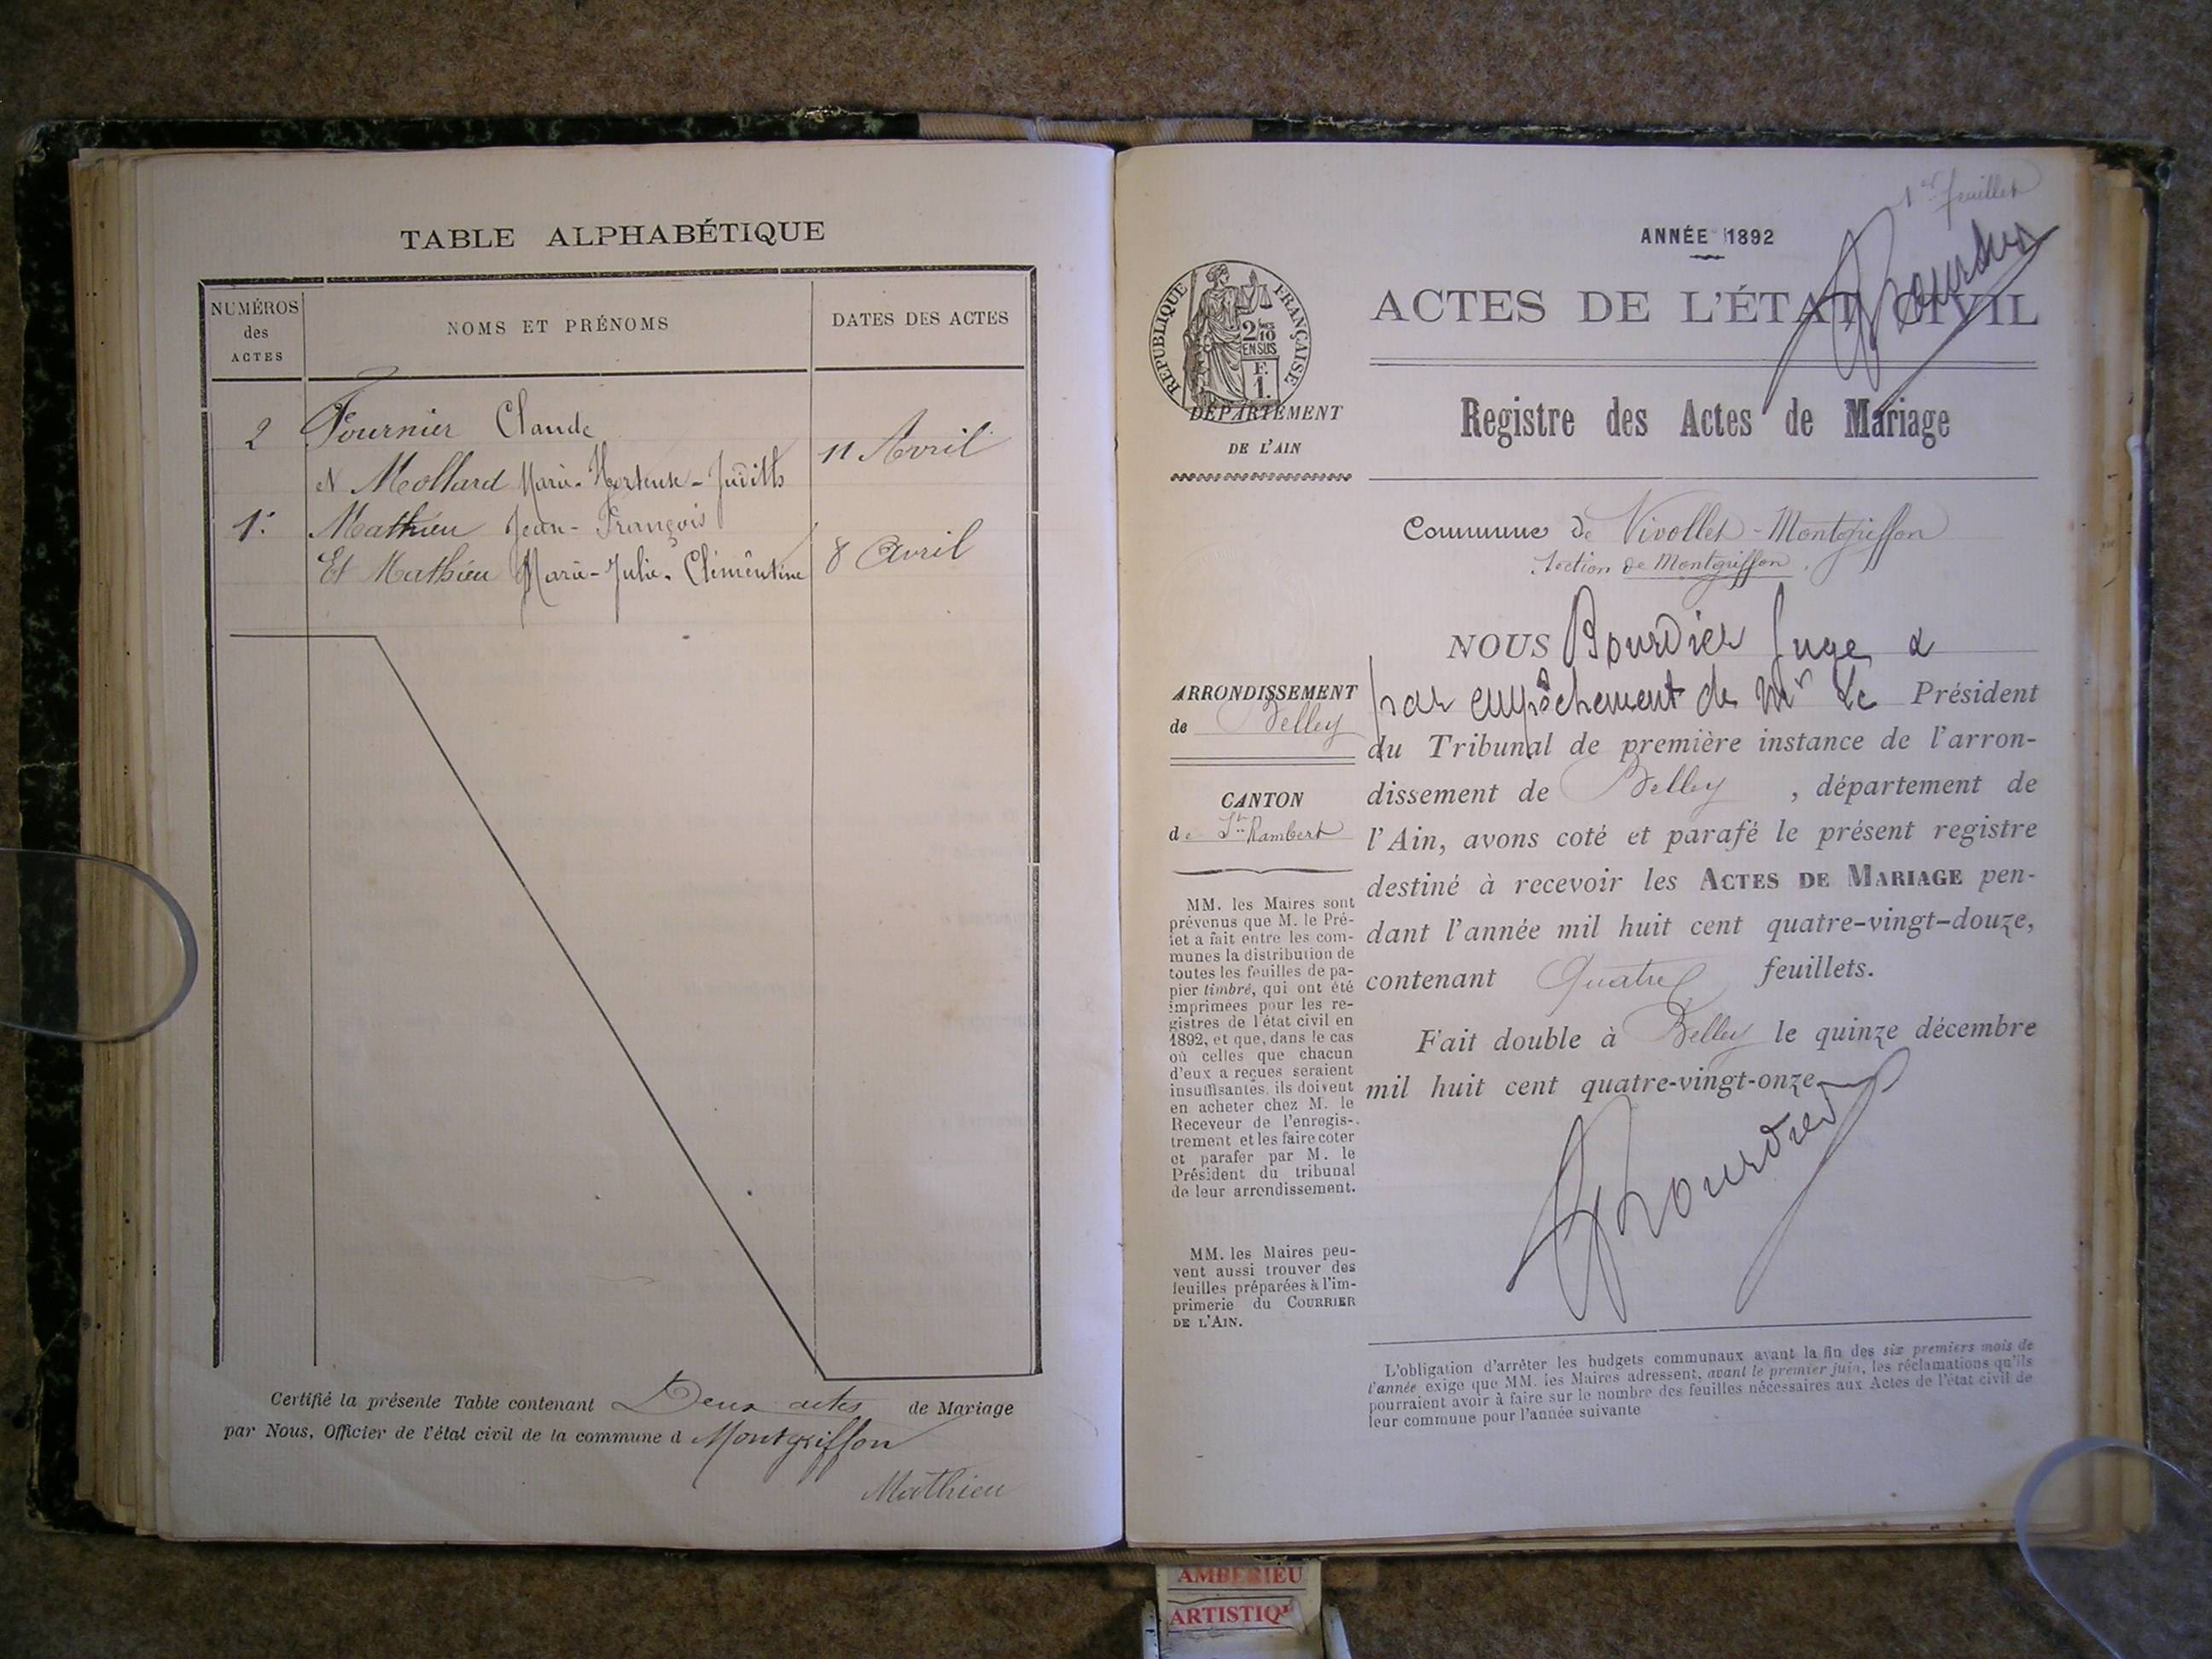 TABLE ALPHABÉTIQUE
NUMÉROS
des
ACTES
NOMS ET PRÉNOMS
DATES DES ACTES
2
Fournier Claude
et Mollard Marie-Hortense-Judith
11 Avril
1.
Mathieu Jean-François
Et Mathieu Marie-Julie-Clémentine
8 Avril
Certifié la présente Table contenant Deux actes de Mariage
par Nous, Officier de l'état civil de la commune d Montgriffon
Mathieu
1er feuillet
Bourdier
ANNÉE 1892
ACTES DE L'ÉTAT CIVIL
RÉPUBLIQUE FRANÇAISE
2 MES
10
EN SUS
F.
1.
DÉPARTEMENT
DE L'AIN
Registre des Actes de Mariage
Commune de Vivollet-Montgriffon
Section de Montgriffon.
ARRONDISSEMENT
de Belley
CANTON
de St Rambert
MM. les Maires sont
prévenus que M. le Pré-
fet a fait entre les com-
munes la distribution de
toutes les feuilles de pa-
pier timbré, qui ont été
imprimées pour les re-
gistres de l'état civil en
1892, et que, dans le cas
où celles que chacun
d'eux a reçues seraient
insuffisantes, ils doivent
en acheter chez M. le
Receveur de l'enregis-
trement et les faire coter
et parafer par M. le
Président du tribunal
de leur arrondissement.
MM. les Maires peu-
vent aussi trouver des
feuilles préparées à l'im-
primerie du COURRIER
DE L'AIN.
NOUS Bourdier Juge
par empêchement de Mr Le Président
du Tribunal de première instance de l'arron-
dissement de Belley, département de
l'Ain, avons coté et parafé le présent registre
destiné à recevoir les ACTES DE MARIAGE pen-
dant l'année mil huit cent quatre-vingt-douze,
contenant Quatre feuillets.
Fait double à Belley le quinze décembre
mil huit cent quatre-vingt-onze
Bourdier
L'obligation d'arrêter les budgets communaux avant la fin des six premiers mois de
l'année exige que MM. les Maires adressent, avant le premier juin, les réclamations qu'ils
pourraient avoir à faire sur le nombre des feuilles nécessaires aux Actes de l'état civil de
leur commune pour l'année suivante
AMBERIEU
ARTISTIQU